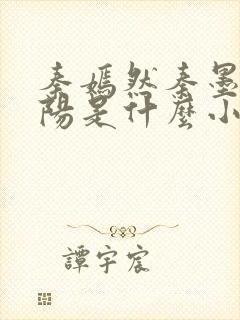 秦嫣然秦墨
陽是什麼小
譚宇宸